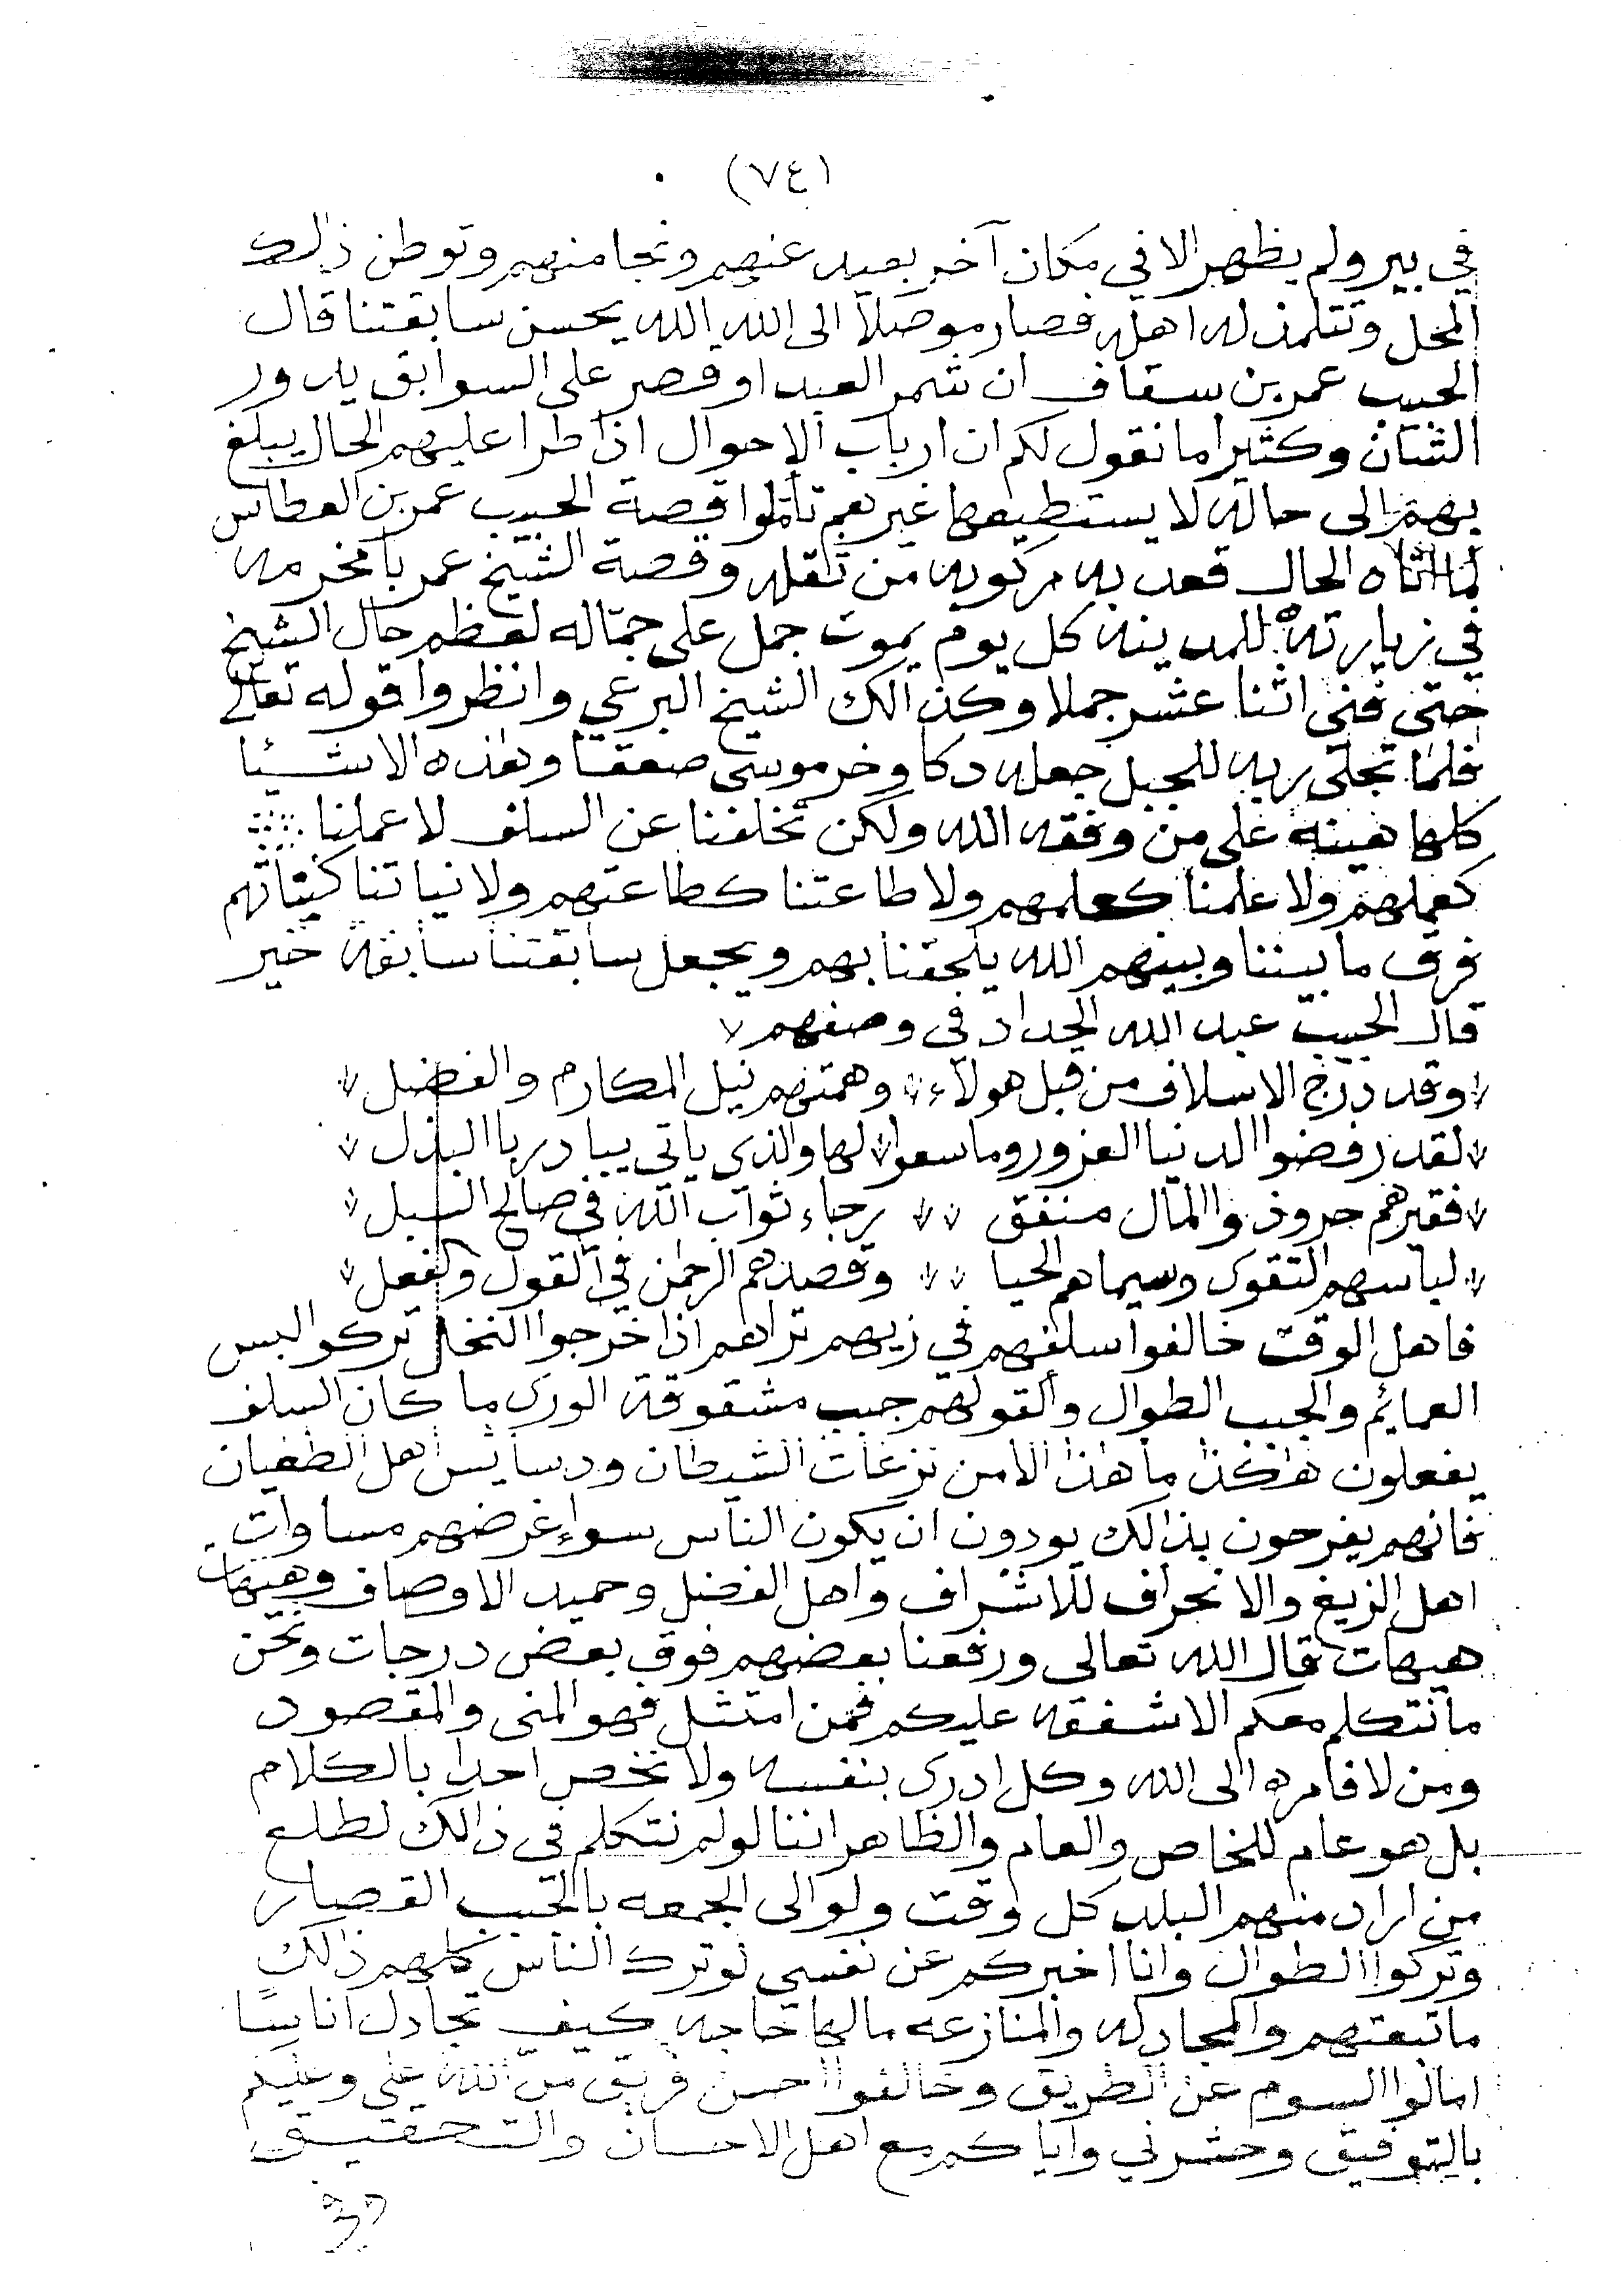 (٧٤)
في بير ولم يظهر الا في مكان آخر بعيد عنهم ونجا منهم وتوطن ذلك
المحل وتتلمذ له اهله فصار موصلاً الى الله الله يحسن سابقتنا قال
الحبيب عمر بن سقاف ان شمر العبد او قصر على السوابق يدور
الشان وكثيرا ما نقول لكم ان ارباب الاحوال اذا طرا عليهم الحال يبلغ
بهم الى حاله لا يستطيعها غيرهم تأملوا قصة الحبيب عمر بن العطاس
لما اتاه الحال قعد به مركوبه من ثقله وقصة الشيخ عمر بامخرمه
في زيارته للمدينه كل يوم يموت جمل على جمّاله لعظم حال الشيخ
حتى فني اثنا عشر جملا وكذالك الشيخ البرعي وانظروا قوله تعالى
فلما تجلى ربه للجبل جعله دكا وخر موسى صعقا وهذه الاشيا
كلها هينه على من وفقه الله ولكن تخلفنا عن السلف لا عملنا
كعملهم ولا علمنا كعلمهم ولا طاعتنا كطاعتهم ولا نياتنا كنياتهم
فرق ما بيننا وبينهم الله يلحقنا بهم ويجعل سابقتنا سابقة خير
قال الحبيب عبد الله الحداد في وصفهم
وقد درج الاسلاف من قبل هولاء وهمتهم نيل المكارم والفضل
لقد رفضوا الدنيا الغرور وما سعوا لها والذي ياتي يبادر باالبذل
فقيرهم حر وذوا المال منفق رجاء ثواب الله في صالح السبل
لباسهم التقوى وسيماهم الحيا وقصدهم الرحمن في القول والفعل
فاهل الوقت خالفوا سلفهم في زيهم تراهم اذا خرجوا النخل تركوا لبس
العمائم والجبب الطوال والقو لهم جبب مشقوقة الورى ما كان السلف
يفعلون هاكذا ما هذا الا من نزغات الشيطان ودسايس اهل الطغيان
فانهم يفرحون بذالك يودون ان يكون الناس سواء غرضهم مساوات
اهل الزيغ والانحراف للاشراف واهل الفضل وحميد الاوصاف وهيهات
هيهات قال الله تعالى ورفعنا بعضهم فوق بعض درجات ونحن
ما نتكلم معكم الا شفقه عليكم فمن امتثل فهو المنى والمقصود
ومن لا فامره الى الله وكل ادرى بنفسه ولا نخص احدا بالكلام
بل هو عام للخاص والعام والظاهر اننا لو لم نتكلم في ذالك لطلع
من اراد منهم البلد كل وقت ولو الى الجمعه باالجبب القصار
وتركوا الطوال وانا اخبركم عن نفسي لو ترك الناس كلهم ذالك
ما تبعتهم والمجادله والمنازعه مالها حاجه كيف تجادل اناسًا
امالوا السوم عن الطريق وخالفوا احسن فريق من الله علي وعليكم
بالتوفيق وحشرني واياكم مع اهل الاحسان والتحقيق